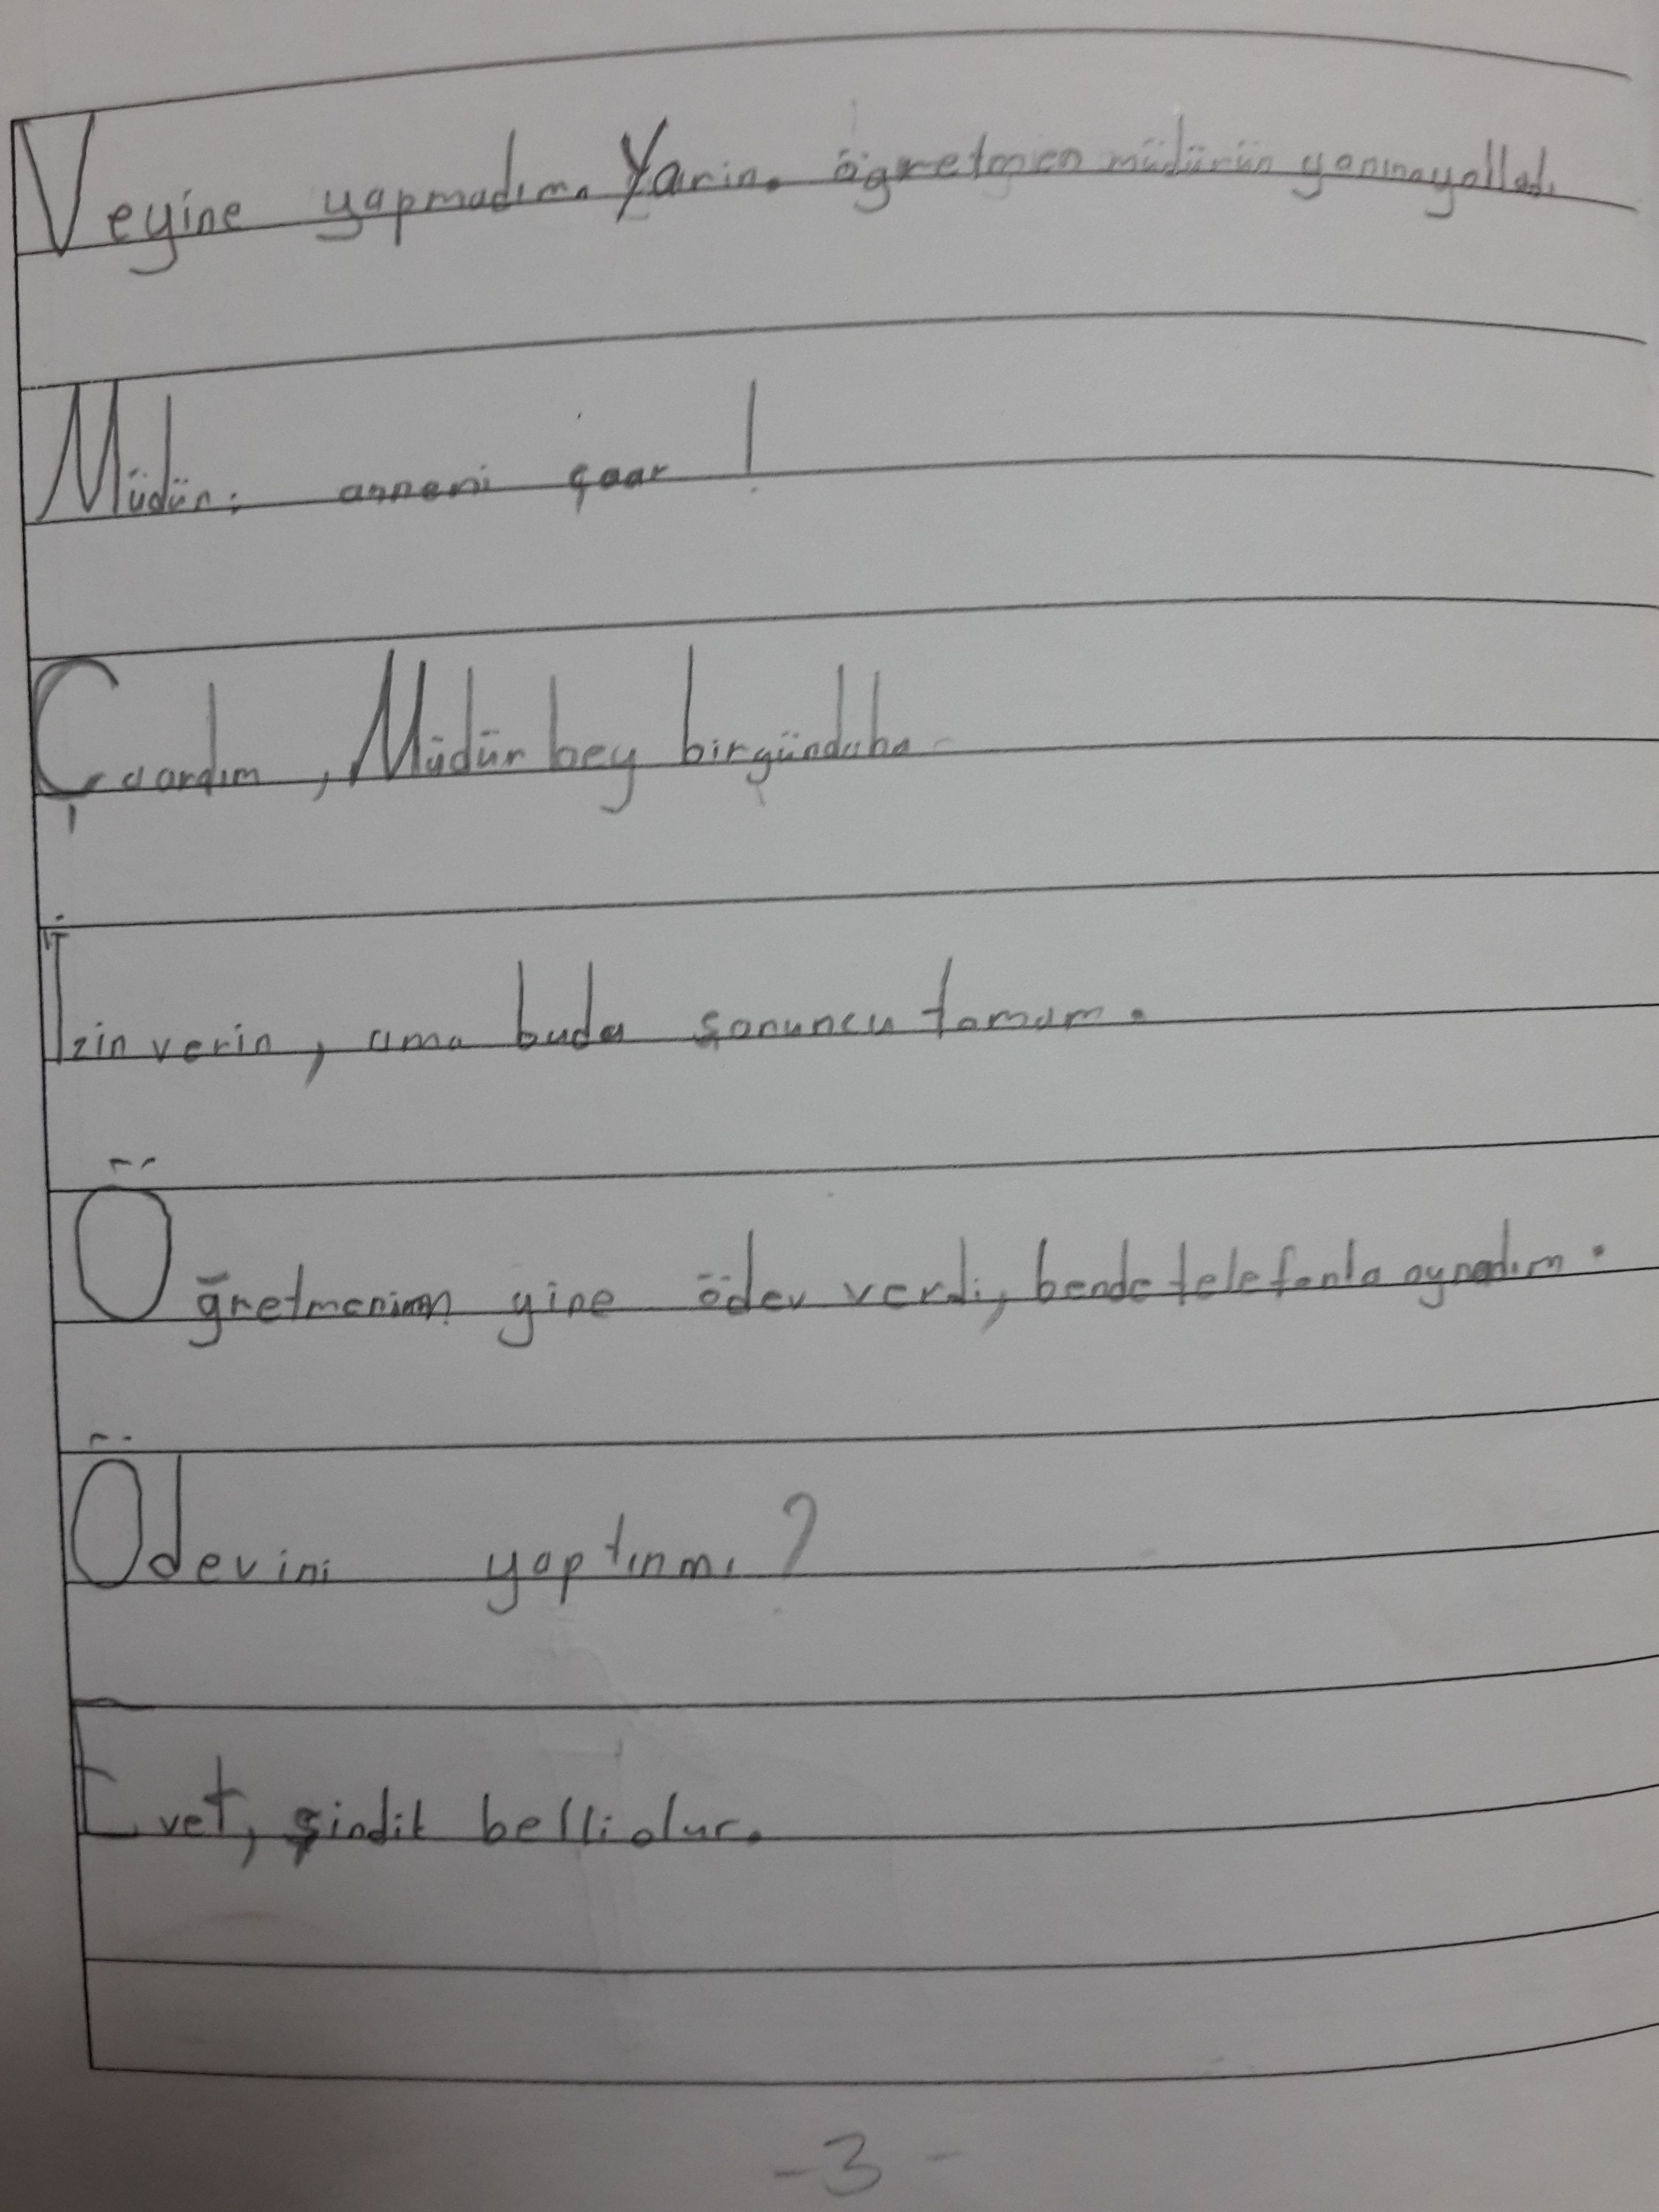 Veyine yapmadım. Yarin. öğretmen müdürün yanınayolladı
Müdür: anneni çaar !
Çaardım, Müdür bey birgündaha
İzin verin, ama buda sonuncu tamam.
Öğretmenimm yine ödev verdi, bende telefonla oynadım.
Ödevini yaptınmı ?
Evet, şindik belliolur.
-3-